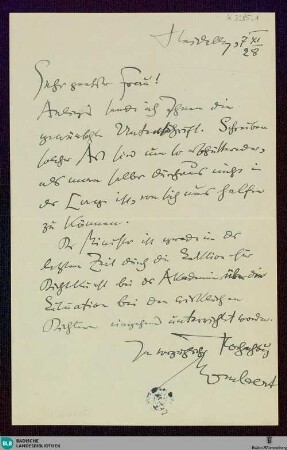 K 3285,1
Heidelberg, 7 XI
28
Sehr geehrte Frau!
Anliegend sende ich Ihnen die
gewünschte Unterschrift. Schreiben
solcher Art sind um so erschütternder,
als man selber durchaus nicht in
der Lage ist, wirklich helfen
zu können.
Der Minister ist gerade in der
letzten Zeit durch die Sektion für
Dichtkunst bei der Akademie über die
Situation bei den wirklichen
Dichtern eingehend unterrichtet worden.
In vorzüglicher Hochachtung
Mombert
BLB BADISCHE
LANDESBIBLIOTHEK
Baden-Württemberg